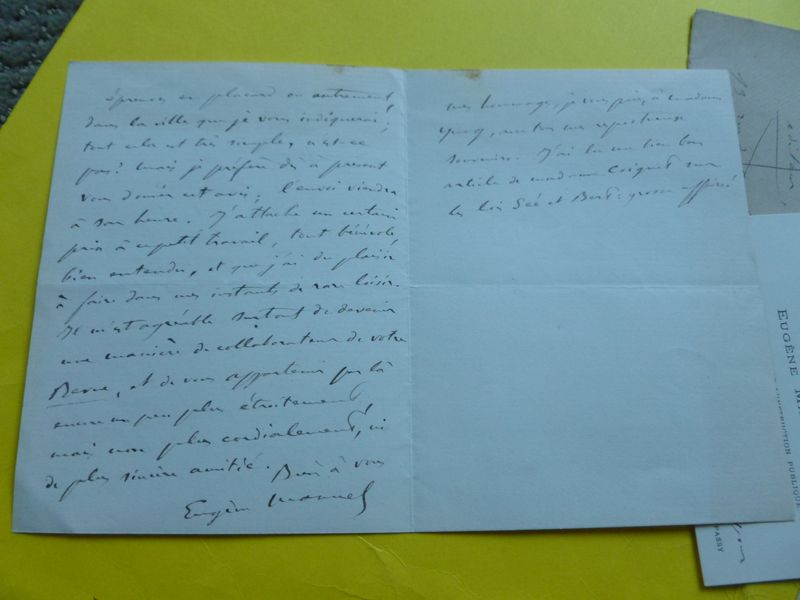 épreuves en placard ou autrement,
dans la ville que je vous indiquerai;
tout cela est très simple, n'est ce
pas? mais je préfère dès à présent
vous donner cet avis; l'envoi viendra
à son heure. J'attache un certain
prix à ce petit travail, tout bénévole
bien entendu, et que j'ai du plaisir
à faire dans mes instants de rare loisir.
Il m'est agréable surtout de devenir
une manière de collaborateur de votre
Revue, et de vous appartenir par là
encore un peu plus étroitement,
mais non plus cordialement, ni
de plus sincère amitié. Bien à vous
Eugène Manuel
mes hommages, je vous prie, à madame
et mes respectueux
souvenirs. J'ai lu un bien bon
article de madame Coignet sur
les lois Sée et Bert: grosse affaire!
EUGÈNE
PUBLIQUE
PASSY